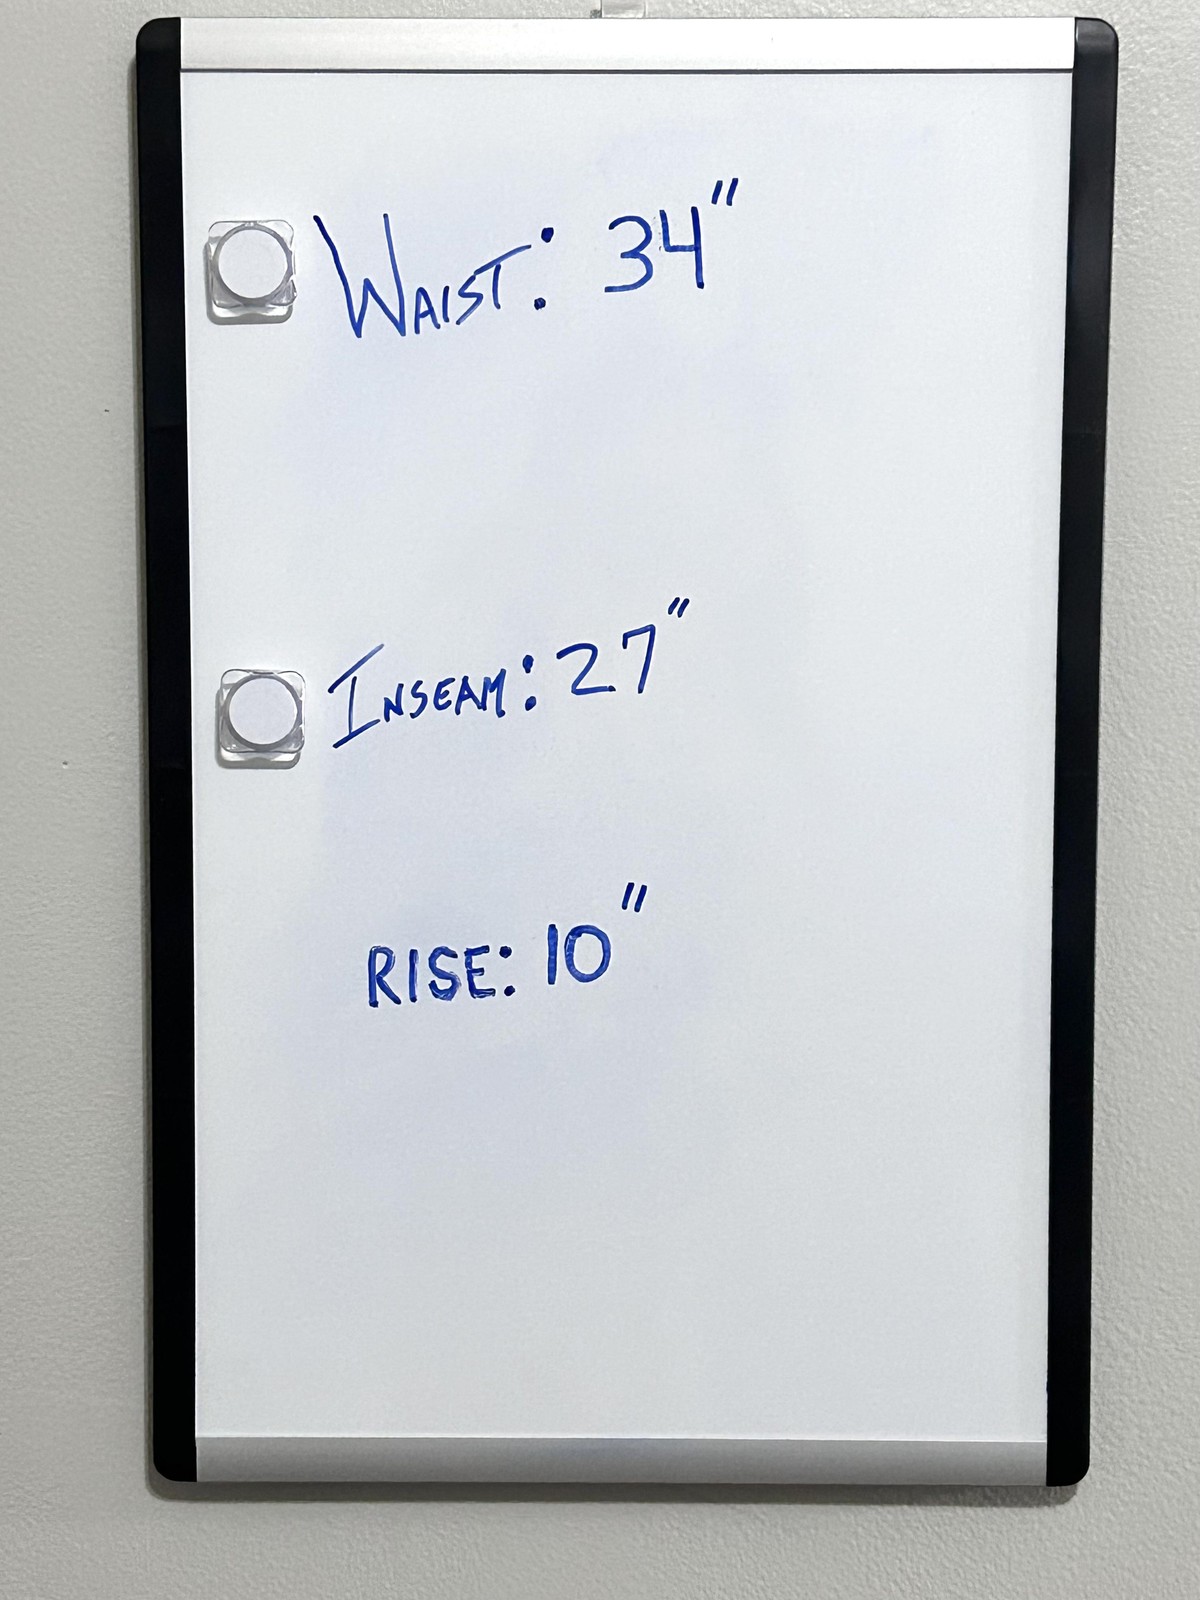 WAIST: 34"
INSEAM: 27"
RISE: 10"